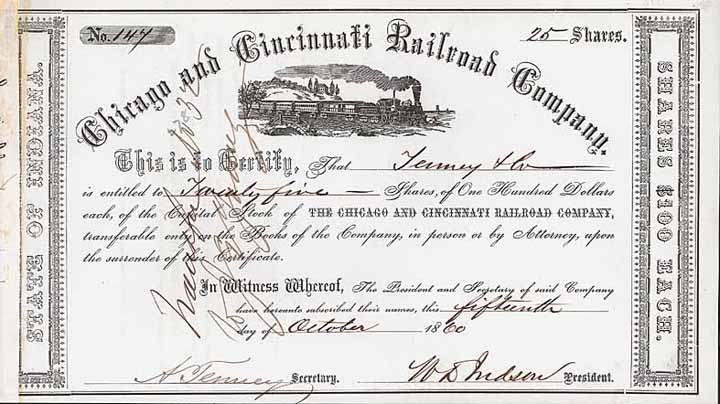 No. 147
25 Shares.
Chicago and Cincinnati Railroad Company.
STATE OF INDIANA.
SHARES $100 EACH.
This is to Certify, That Tenney & Co
is entitled to Twenty five Shares, of One Hundred Dollars
each, of the Capital Stock of THE CHICAGO AND CINCINNATI RAILROAD COMPANY,
transferable only on the Books of the Company, in person or by Attorney, upon
the surrender of this Certificate.
In Witness Whereof, The President and Secretary of said Company
have hereunto subscribed their names, this fifteenth
day of October 1860
A Tenney Secretary. W D Judson President.